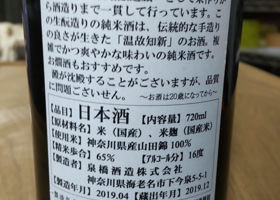 ら酒造りまで一貫して行っています。こ
の生酛造りの純米酒は、伝統的な手造り
の良さが生きた「温故知新」のお酒。複
雑でかつ爽やかな味わいの純米酒です。
お燗酒もおすすめです。
澱が沈殿することがございますが、品質
に問題ございません。 ～お酒は20歳になってから～
【品目】日本酒【内容量】720ml
【原材料名】米（国産）、米麹（国産米）
【使用米】神奈川県産山田錦100%
【精米歩合】65% 【アルコール分】16度
【製造者】泉橋酒造株式会社
神奈川県海老名市下今泉5-5-1
【製造年月】2019.04【蔵出年月】2019.12